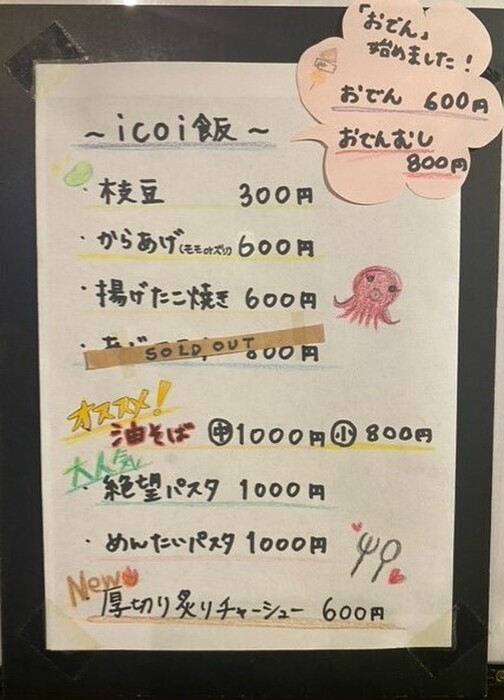 「おでん」
始めました!
おでん 600円
おでんむし
800円
～icoi飯～
・枝豆 300円
・からあげ(モモorズリ) 600円
・揚げたこ焼き 600円
SOLD OUT 800円
オススメ!
油そば ㊥1000円 ㊙小 800円
大人気
・絶望パスタ 1000円
・めんたいパスタ 1000円
New
・厚切り炙りチャーシュー 600円